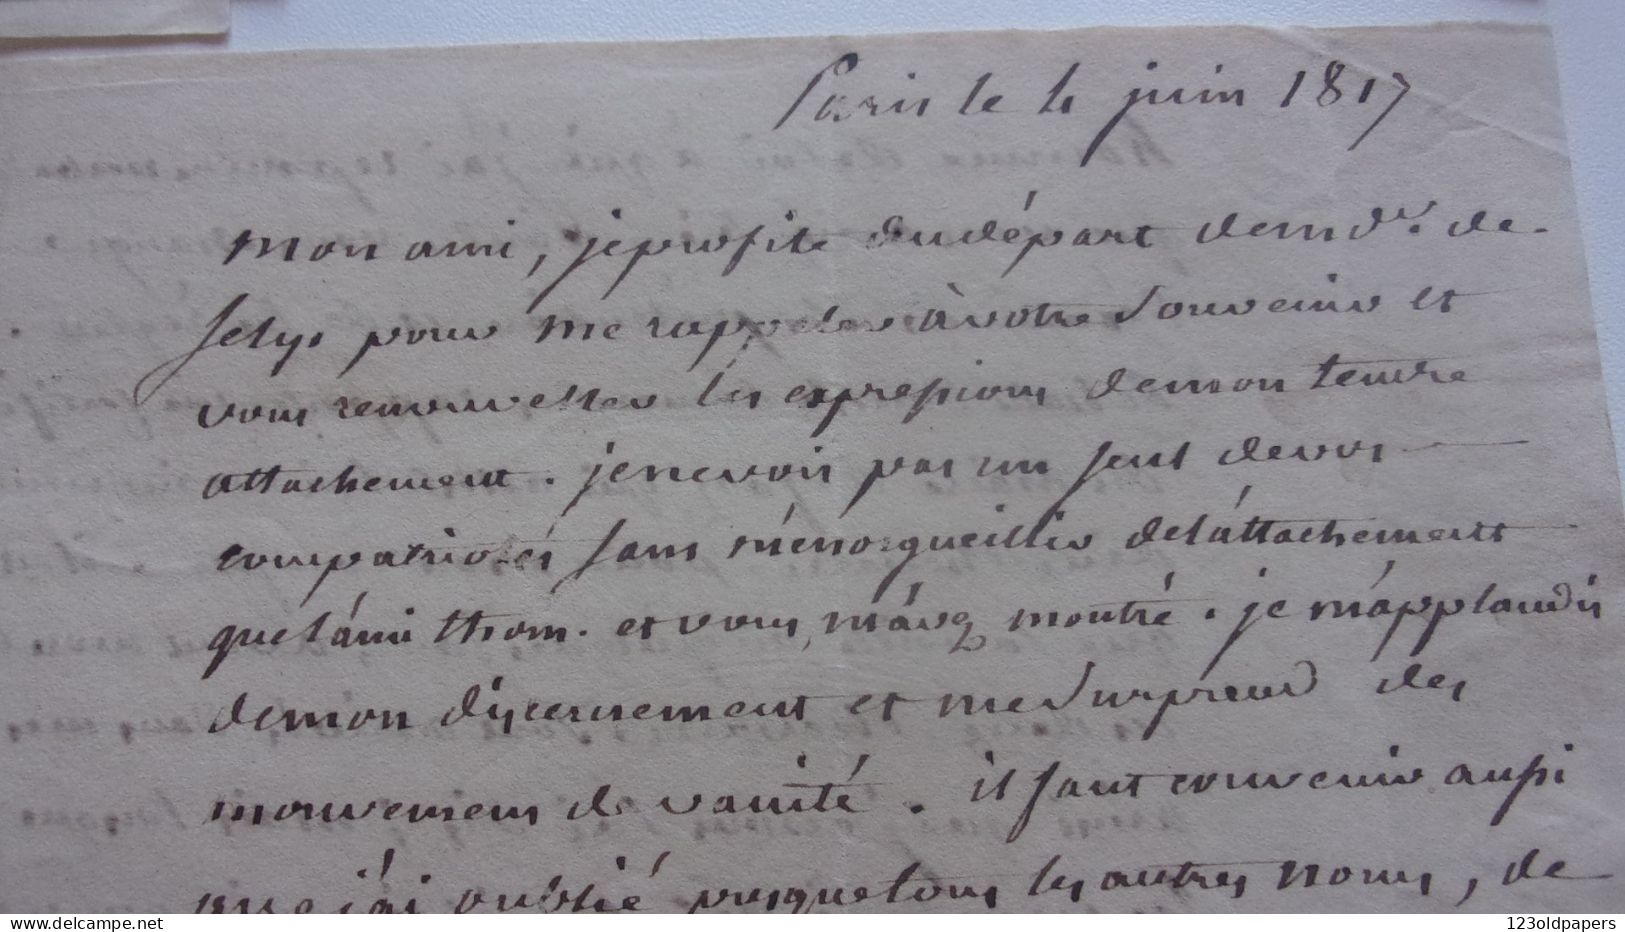 Paris le 4 juin 1817
mon ami, je profite du départ de md.r de-
selys pour me rappeler à votre souvenir et
vous renouveller les expressions de mon tendre
attachement. je ne vois pas un seul de vos
compatriotes sans m'énorgueillir de l'áttachement
que l'ámi thom. et vous m'ávez montré. je m'ápplaudis
de mon discernement et me surprend des
mouvemens de vanité. il faut convenir aussi
que j'ái oublié presque tous les autres noms, de
delcampe.net
123oldpapers